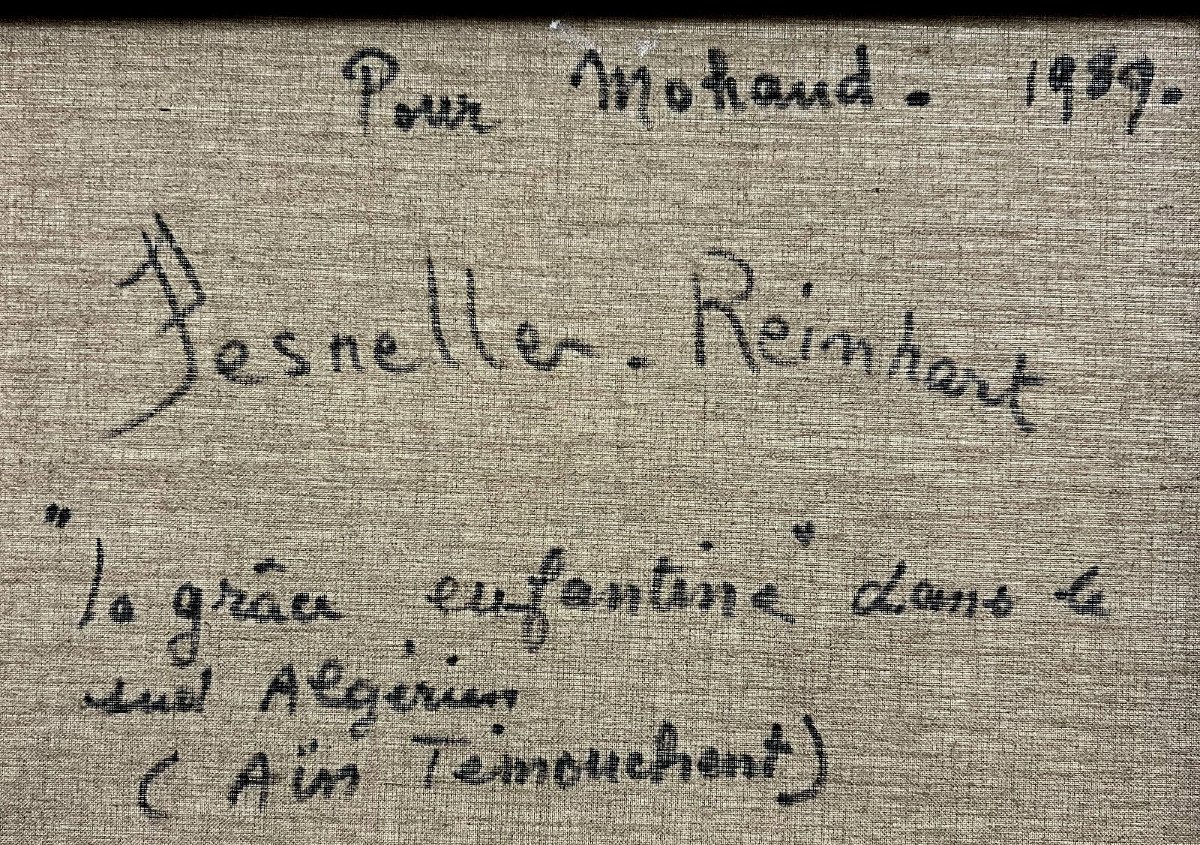 Pour Mohand. 1989.
Pesneller. Reinhart
"la grâce enfantine" dans le
sud Algérien
(Aïn Témouchent)